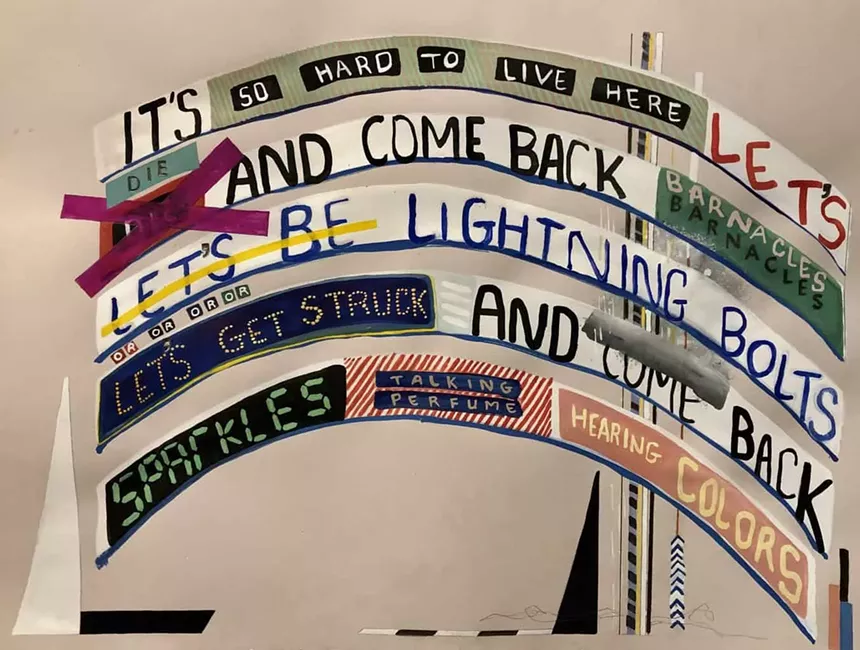 IT'S SO HARD TO LIVE HERE LET'S
DIE AND COME BACK BARNACLES
BARNACLES
LET'S BE LIGHTNING BOLTS
OR OR OR OR
LET'S GET STRUCK AND COME BACK
SPARKLES TALKING PERFUME HEARING COLORS